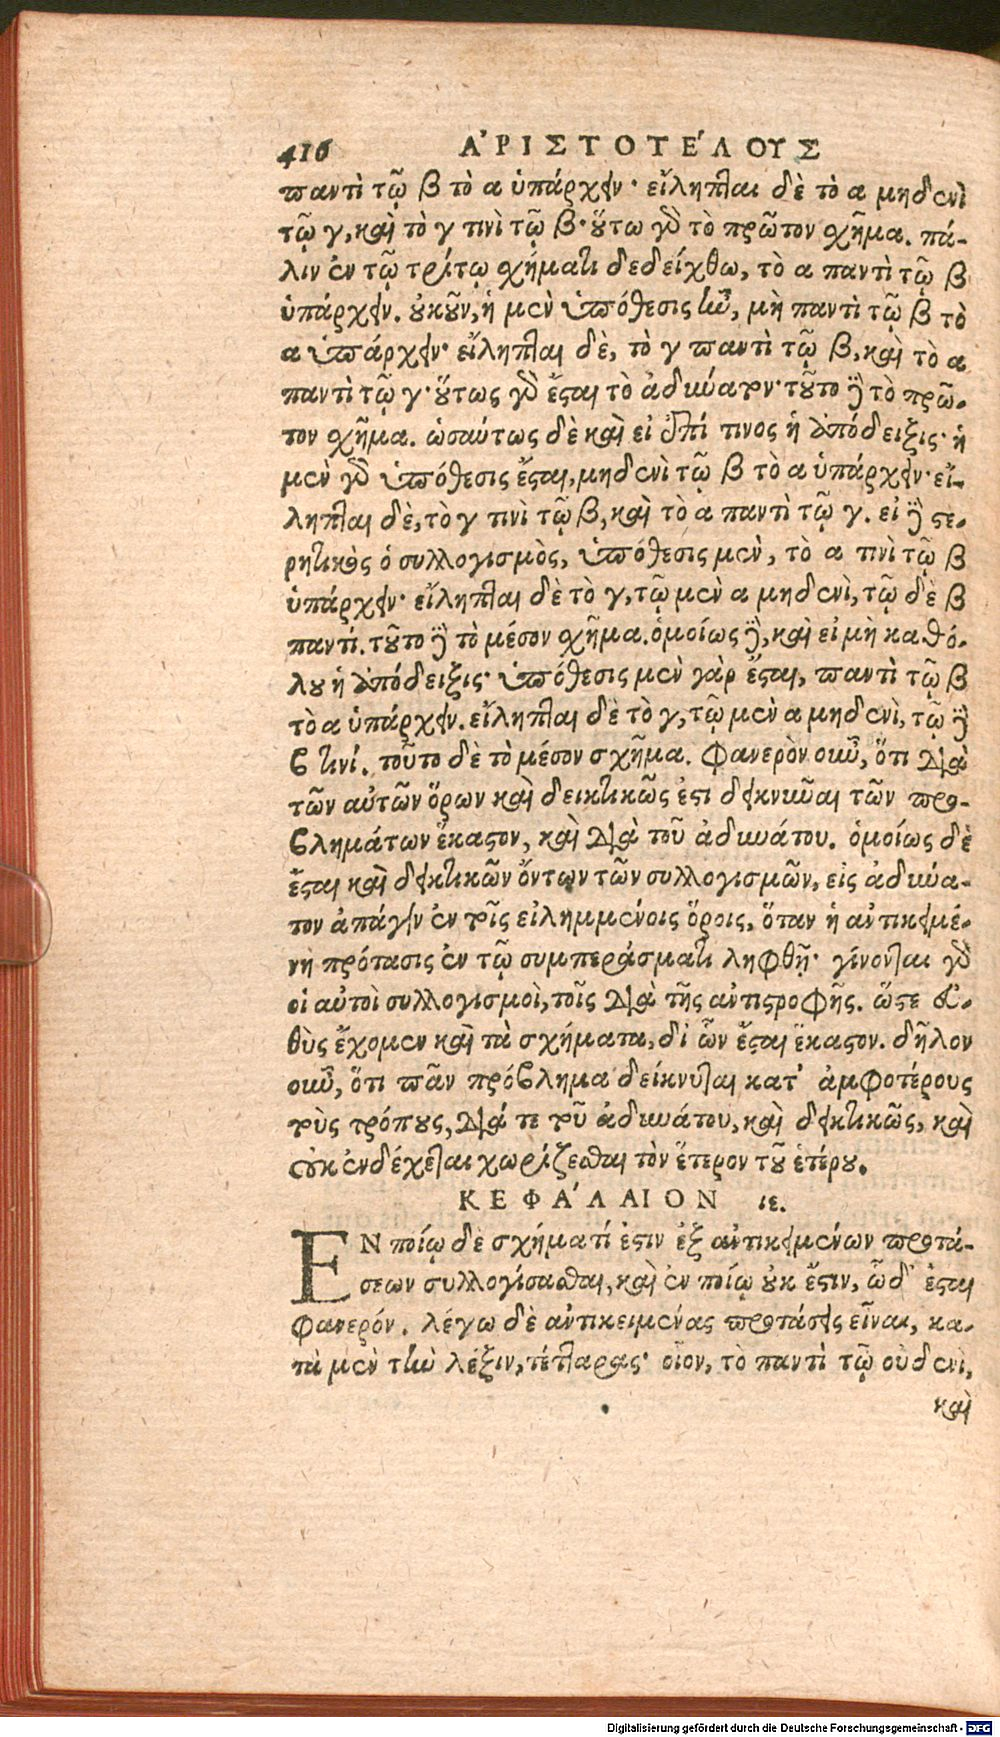 416 ἈΡΙΣΤΟΤΈΛΟΥΣ
παντὶ τῷ β τὸ α ὑπάρχειν· εἴληπται δὲ τὸ α μηδενὶ
τῷ γ, καὶ τὸ γ τινὶ τῷ β· ὕτω γὰρ τὸ πρῶτον σχῆμα. πά-
λιν ἐν τῷ τρίτῳ σχήματι δεδείχθω, τὸ α παντὶ τῷ β
ὑπάρχειν. ὐκοῦν, ἡ μὲν ὑπόθεσις ἦν, μὴ παντὶ τῷ β τὸ
α ὑπάρχειν· εἴληπται δὲ, τὸ γ παντὶ τῷ β, καὶ τὸ α
παντὶ τῷ γ· ὕτως γὰρ ἔσται τὸ ἀδύνατον· τοῦτο δὲ τὸ πρῶ-
τον σχῆμα. ὡσαύτως δὲ καὶ εἰ ἐπί τινος ἡ ἀπόδειξις· ἡ
μὲν γὰρ ὑπόθεσις ἔσται, μηδενὶ τῷ β τὸ α ὑπάρχειν· εἴ-
ληπται δὲ, τὸ γ τινὶ τῷ β, καὶ τὸ α παντὶ τῷ γ. εἰ δὲ στε-
ρητικὸς ὁ συλλογισμὸς, ὑπόθεσις μὲν, τὸ α τινὶ τῷ β
ὑπάρχειν· εἴληπται δὲ τὸ γ, τῷ μὲν α μηδενὶ, τῷ δὲ β
παντί. τοῦτο δὲ τὸ μέσον σχῆμα. ὁμοίως δὲ, καὶ εἰ μὴ καθό-
λου ἡ ἀπόδειξις· ὑπόθεσις μὲν γὰρ ἔσται, παντὶ τῷ β
τὸ α ὑπάρχειν. εἴληπται δὲ τὸ γ, τῷ μὲν α μηδενὶ, τῷ δὲ
β τινί. τοῦτο δὲ τὸ μέσον σχῆμα. Φανερὸν οὖν, ὅτι διὰ
τῶν αὐτῶν ὅρων καὶ δεικτικῶς ἐστι δεικνῦναι τῶν προ-
βλημάτων ἕκαστον, καὶ διὰ τοῦ ἀδυνάτου. ὁμοίως δὲ
ἔσται καὶ δεικτικῶν ὄντων τῶν συλλογισμῶν, εἰς ἀδύνα-
τον ἀπάγειν ἐν τοῖς εἰλημμένοις ὅροις, ὅταν ἡ ἀντικειμέ-
νη πρότασις ἐν τῷ συμπεράσματι ληφθῇ· γίνονται γὰρ
οἱ αὐτοὶ συλλογισμοὶ, τοῖς διὰ τῆς ἀντιστροφῆς. ὥστε εὐ-
θὺς ἔχομεν καὶ τὰ σχήματα, δι ὧν ἔσται ἕκαστον. δῆλον
οὖν, ὅτι πᾶν πρόβλημα δείκνυται κατ’ ἀμφοτέρους
τοὺς τρόπους, διά τε τοῦ ἀδυνάτου, καὶ δεικτικῶς, καὶ
οὐκ ἐνδέχεται χωρίζεσθαι τὸν ἕτερον τοῦ ἑτέρου.
ΚΕΦΆΛΑΙΟΝ ιε.
ΕΝ ποίῳ δὲ σχήματί ἐστιν ἐξ ἀντικειμένων προτά-
σεων συλλογίσασθαι, καὶ ἐν ποίῳ οὐκ ἔστιν, ὧδ’ ἔσται
φανερόν. λέγω δὲ ἀντικειμένας προτάσεις εἶναι, κα-
τὰ μὲν τὴν λέξιν, τέτταρας· οἷον, τὸ παντὶ τῷ οὐδενὶ,
καὶ
Digitalisierung gefördert durch die Deutsche Forschungsgemeinschaft - DFG